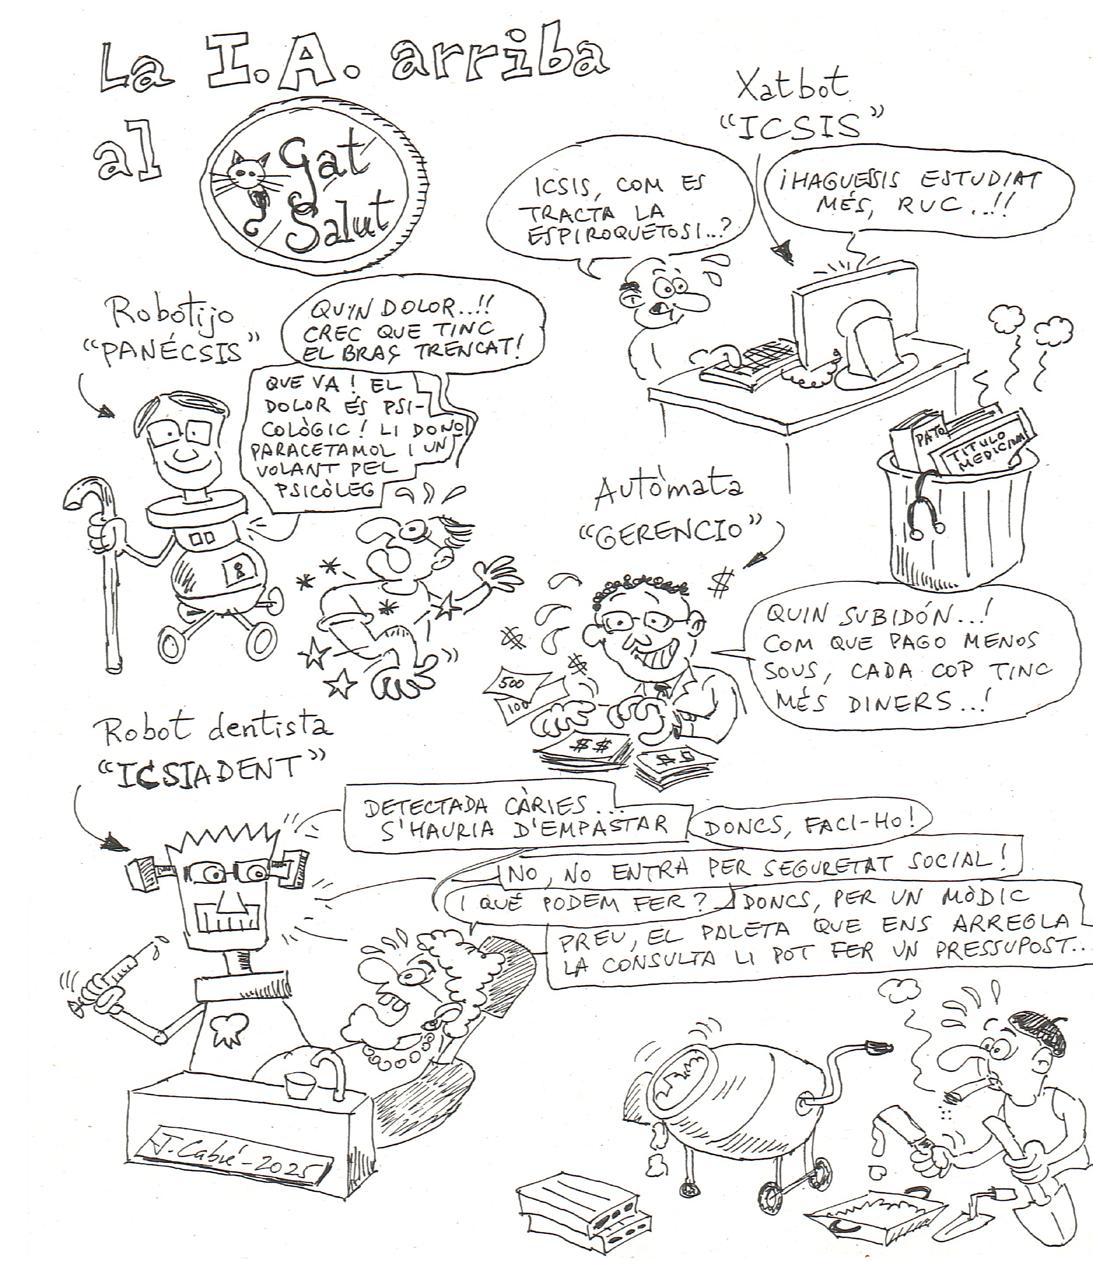 La I.A. arriba
al
Gat
Salut
Xatbot
"ICSIS"
ICSIS, COM ES
TRACTA LA
ESPIROQUETOSI..?
¡HAGUESSIS ESTUDIAT
MÉS, RUC...!!
Robotijo
"PANÉCSIS"
QUIN DOLOR...!!
CREC QUE TINC
EL BRAÇ TRENCAT!
QUE VA! EL
DOLOR ÉS PSI-
COLÒGIC! LI DONO
PARACETAMOL I UN
VOLANT PEL
PSICÒLEG
PATO
TITULO
MEDICINA
Autòmata
"GERENCIO"
$
$
$
500
100
$$
$$
QUIN SUBIDÓN...!
COM QUE PAGO MENOS
SOUS, CADA COP TINC
MÉS DINERS...!
Robot dentista
"ICSIADENT"
DETECTADA CÀRIES...
S'HAURIA D'EMPASTAR
DONCS, FACI-HO!
NO, NO ENTRA PER SEGURETAT SOCIAL!
I QUÈ PODEM FER?
DONCS, PER UN MÒDIC
PREU, EL PALETA QUE ENS ARREGLA
LA CONSULTA LI POT FER UN PRESSUPOST...
J. Cabré-2025